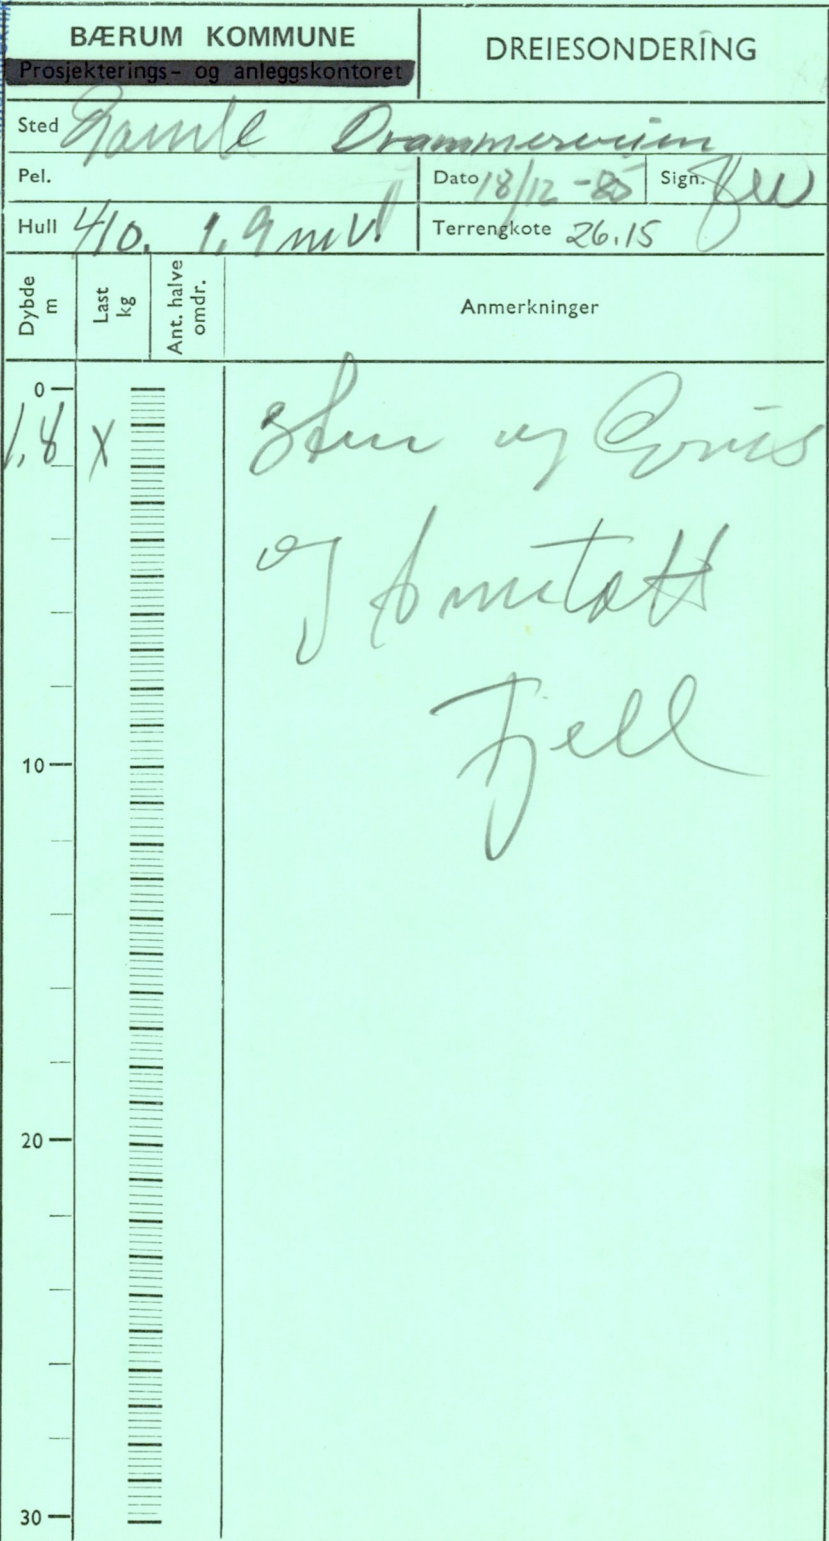 BÆRUM KOMMUNE
Prosjekterings- og anleggskontoret
DREIESONDERING
Sted Gamle Drammensveien
Pel.
Dato 18/12-85 Sign.
Hull 410. 1,9 m V.
Terrengkote 26.15
Dybde m
Last kg
Ant. halve omdr.
Anmerkninger
0
1,8 X
Sten og Grus
og Antatt
Fjell
10
20
30